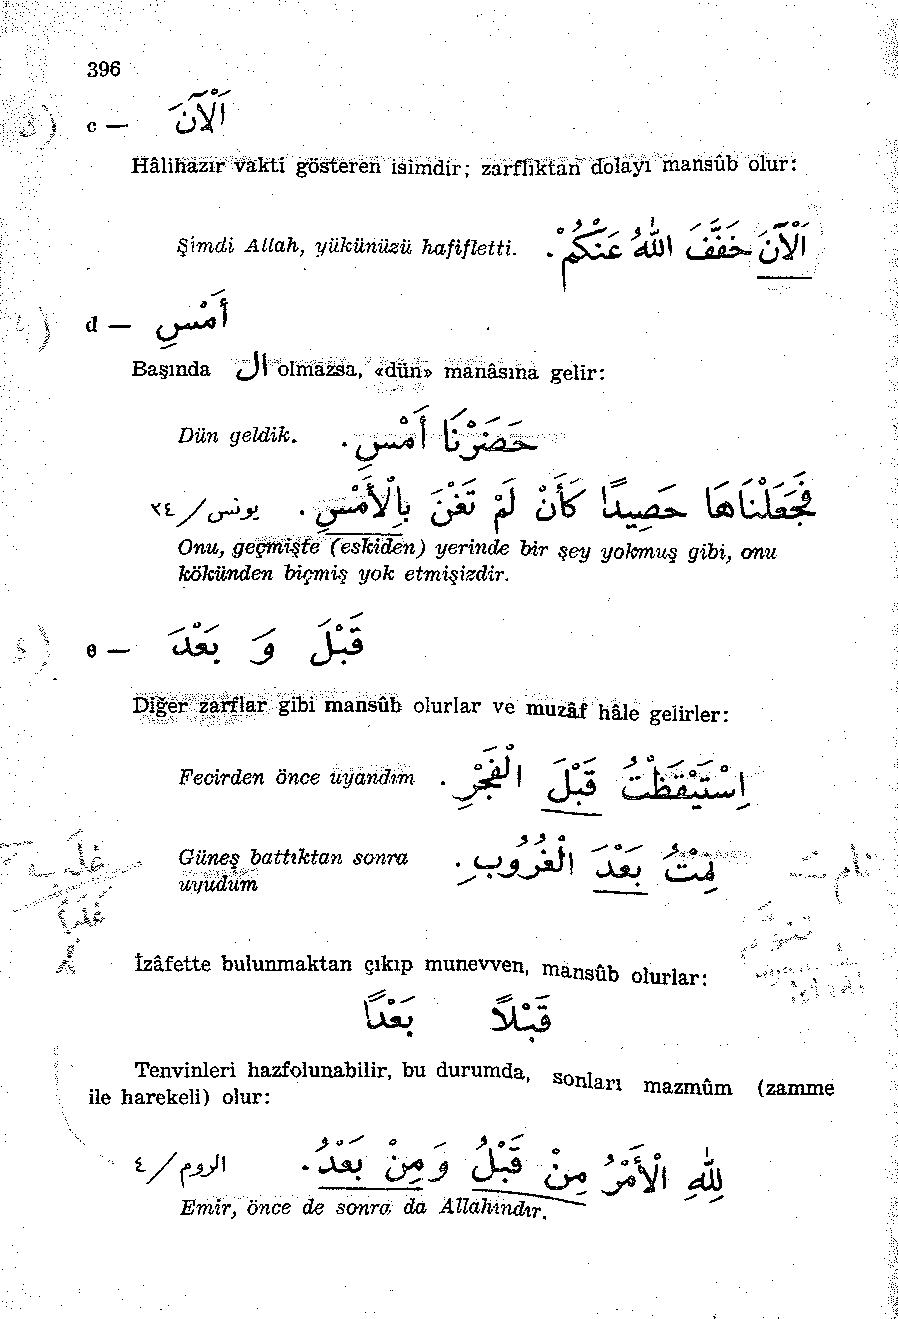 396
c — اَلْآنَ
Hâlihazır vakti gösteren isimdir; zarflıktan dolayı mansûb olur:
Şimdi Allah, yükünüzü hafifletti. اَلْآنَ خَفَّفَ اللّٰهُ عَنْكُمْ .
d — أَمْسِ
Başında ال olmazsa, «dün» manâsına gelir:
Dün geldik. حَضَرْنَا أَمْسِ .
فَجَعَلْنَاهَا حَصِيدًا كَأَنْ لَمْ تَغْنَ بِالْأَمْسِ . يونس/٢٤
Onu, geçmişte (eskiden) yerinde bir şey yokmuş gibi, onu
kökünden biçmiş yok etmişizdir.
e — قَبْلَ وَ بَعْدَ
Diğer zarflar gibi mansûb olurlar ve muzâf hâle gelirler:
Fecirden önce uyandım . اِسْتَيْقَظْتُ قَبْلَ الْفَجْرِ
Güneş battıktan sonra نِمْتُ بَعْدَ الْغُرُوبِ .
uyudum
İzâfette bulunmaktan çıkıp munevven, mansûb olurlar:
قَبْلًا بَعْدًا
Tenvinleri hazfolunabilir, bu durumda, sonları mazmûm (zamme
ile harekeli) olur:
لِلّٰهِ الْأَمْرُ مِنْ قَبْلُ وَمِنْ بَعْدُ . الروم/٤
Emir, önce de sonra da Allahındır.